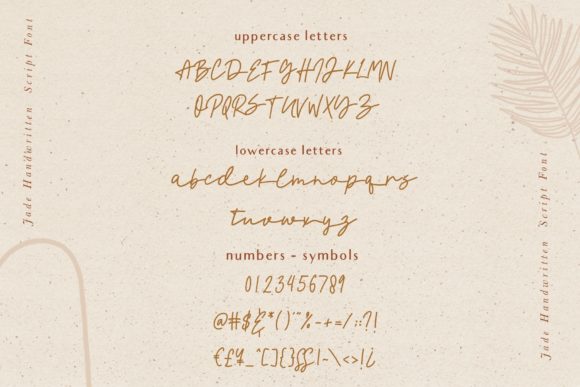 Jade Handwritten Script Font
uppercase letters
ABCDEFGHIJKLMN
OPQRSTUVWXYZ
lowercase letters
abcdefghijklmnopqrs
tuvwxyz
numbers - symbols
0123456789
@#$&*()'"%-+=/:;?!
€£¥_^[]{}§|~\<>!¿
Jade Handwritten Script Font